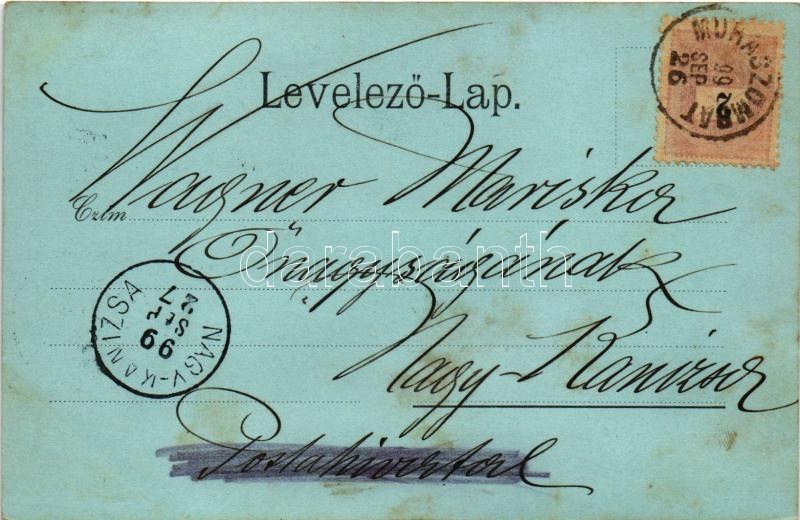 MURASZOMBAT
99
SEP
26
2
Levelező-Lap.
Czim
Wagner Mariska
Őnagyságának
darabanth
NAGY-KANIZSA
99
SEP
27
Nagy-Kanizsa
Postahivatal